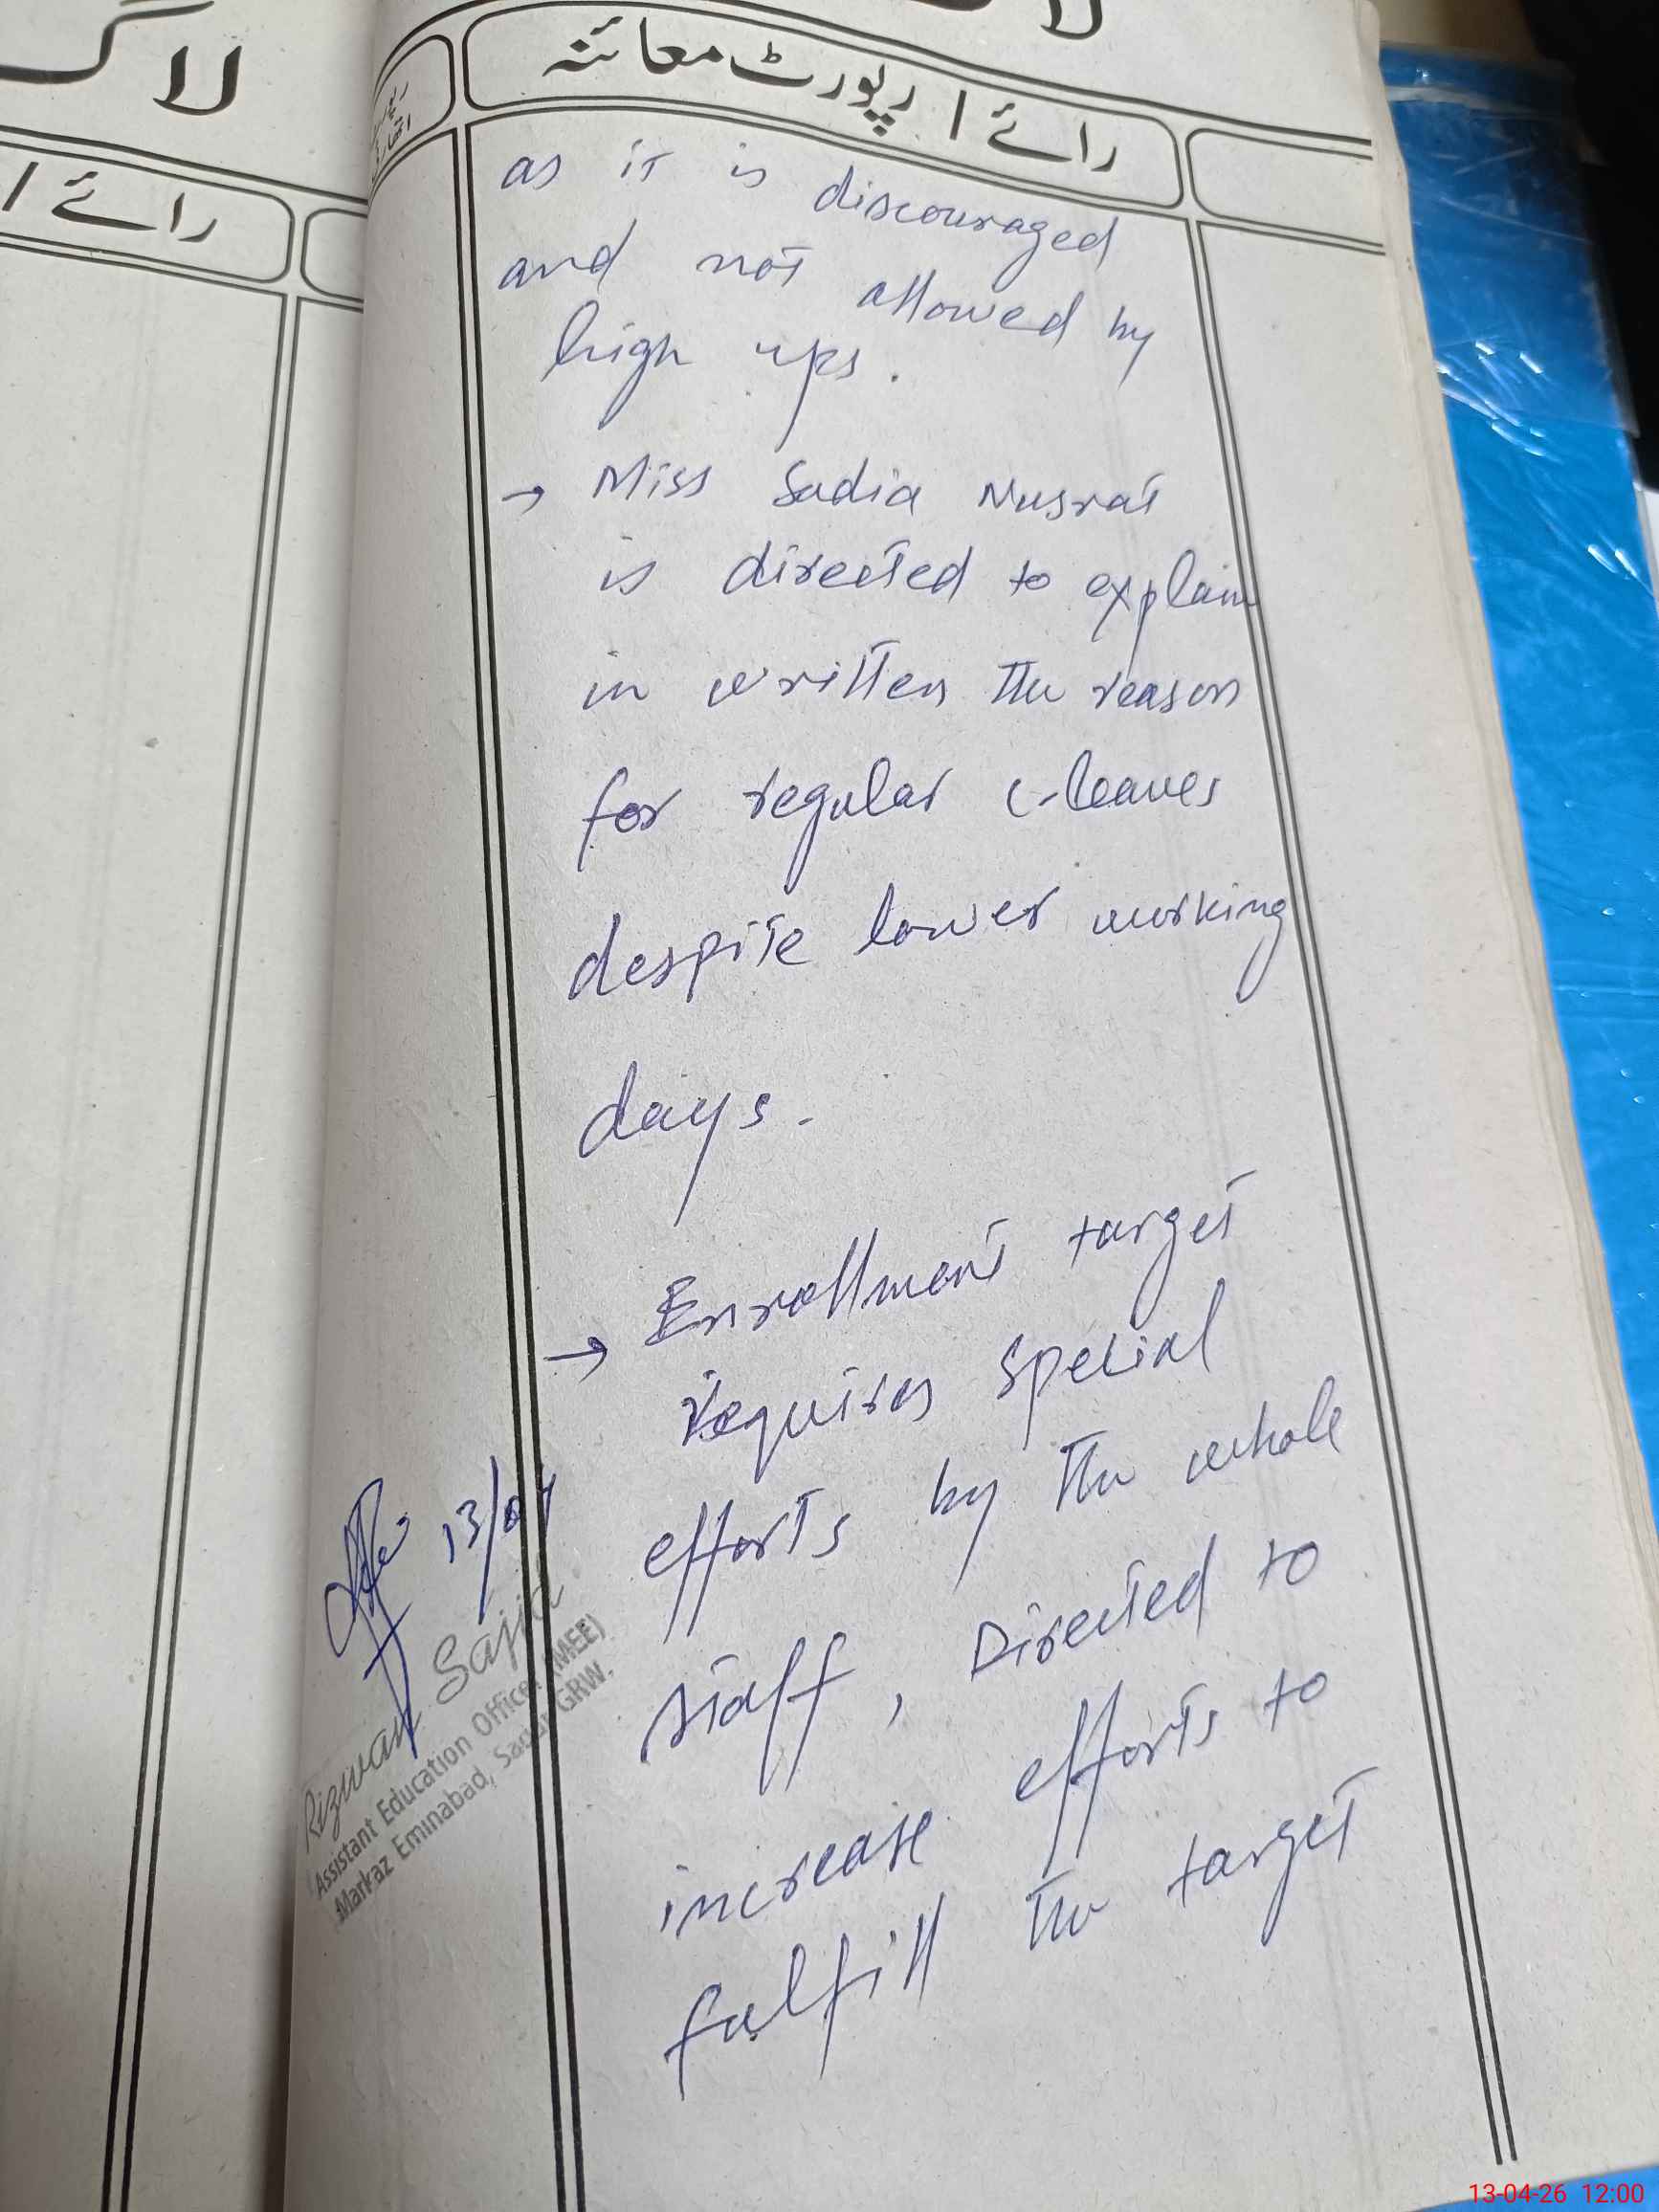 لاگ
رائے ا
رائے / رپورٹ معائنہ
as it is discouraged
and not allowed by
high ups.
→ Miss Sadia Nusrat
is directed to explain
in written the reason
for regular c-leaves
despite lower working
days.
→ Enrollment target
requires special
efforts by the whole
staff, Directed to
increase efforts to
fulfill the target
13/04
Rizwan Sajid
Assistant Education Officer (MEE)
Markaz Eminabad, Sadar GRW.
13-04-26 12:00